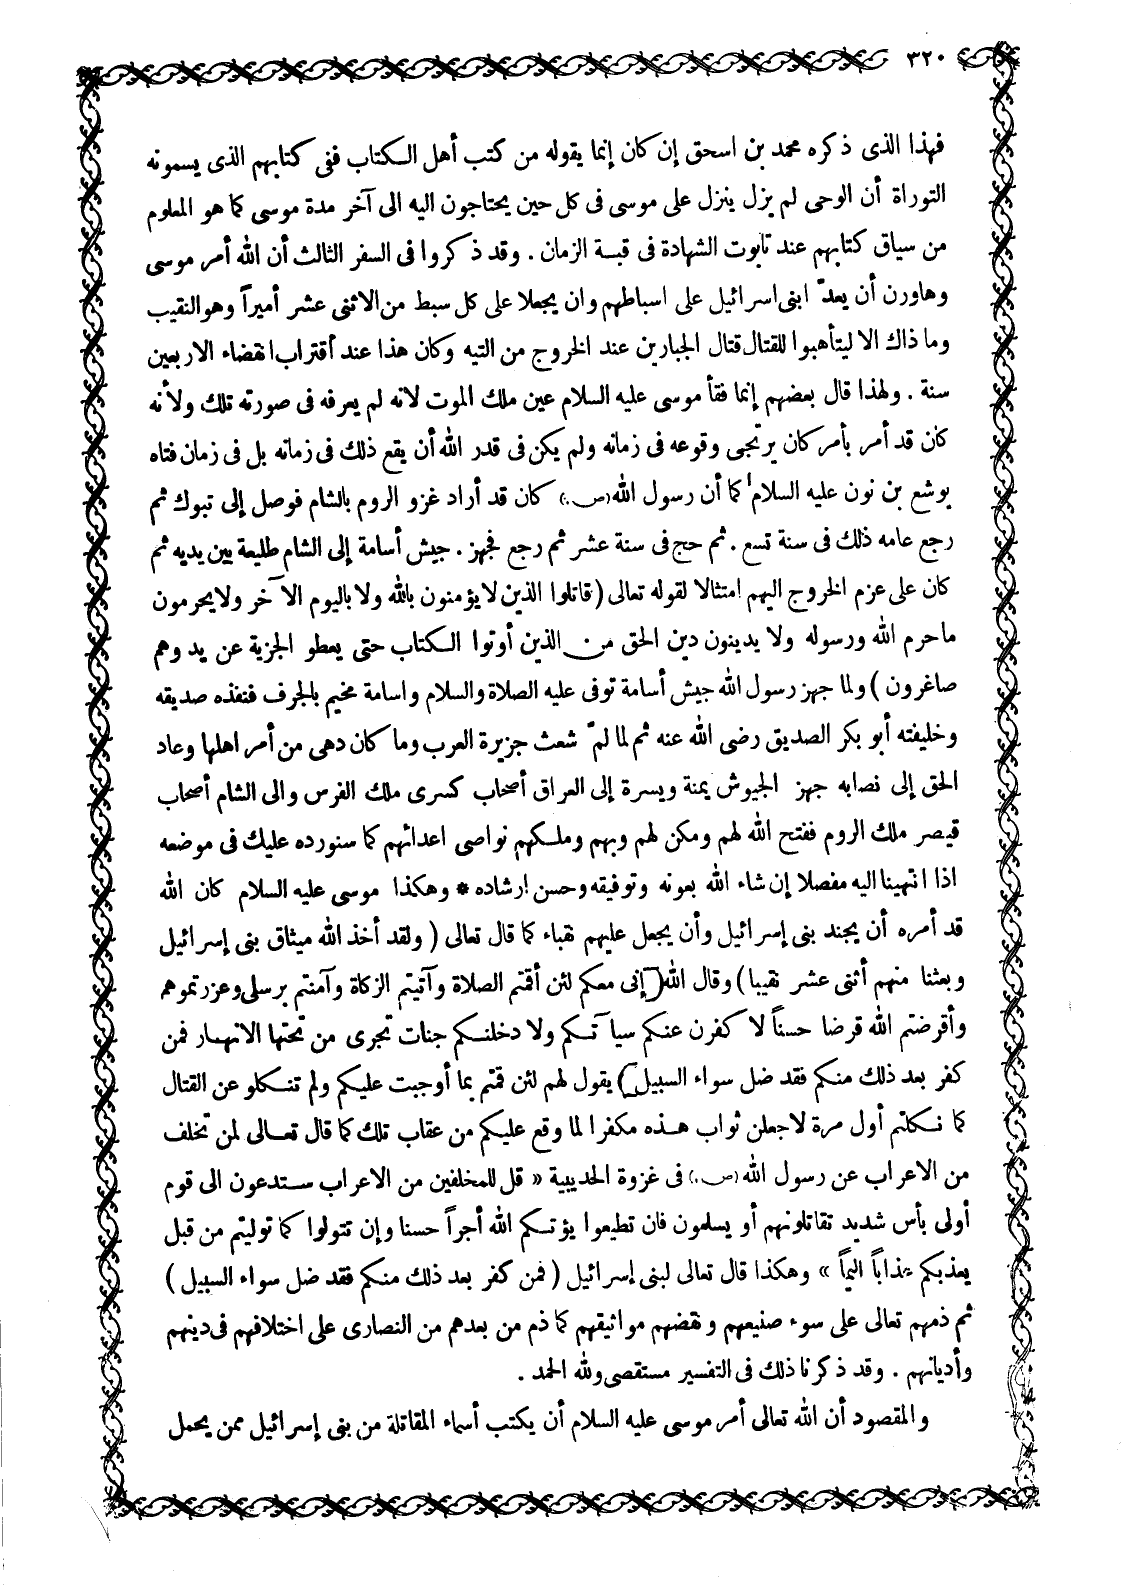 ٣٢٠
فهذا الذى ذكره محمد بن اسحق إن كان إنما يقوله من كتب أهل الكتاب ففى كتابهم الذى يسمونه
التوراة أن الوحى لم يزل ينزل على موسى فى كل حين يحتاجون اليه الى آخر مدة موسى كما هو المعلوم
من سياق كتابهم عند تابوت الشهادة فى قبة الزمان . وقد ذكروا فى السفر الثالث أن الله أمر موسى
وهاورن أن يعدّ ابنى اسرائيل على اسباطهم وان يجعلا على كل سبط من الاثنى عشر أميراً وهو النقيب
وما ذاك الا ليتأهبوا للقتال قتال الجبارين عند الخروج من التيه وكان هذا عند أقتراب انقضاء الاربعين
سنة . ولهذا قال بعضهم إنما فقأ موسى عليه السلام عين ملك الموت لانه لم يعرفه فى صورته تلك ولأنه
كان قد أمر بأمر كان يرتجى وقوعه فى زمانه ولم يكن فى قدر الله أن يقع ذلك فى زمانه بل فى زمان فتاه
يوشع بن نون عليه السلام كما أن رسول الله (ص.) كان قد أراد غزو الروم بالشام فوصل إلى تبوك ثم
رجع عامه ذلك فى سنة تسع . ثم حج فى سنة عشر ثم رجع فجهز . جيش أسامة إلى الشام طليعة بين يديه ثم
كان على عزم الخروج اليهم امتثالا لقوله تعالى (قاتلوا الذين لا يؤمنون بالله ولا باليوم الآخر ولا يحرمون
ما حرم الله ورسوله ولا يدينون دين الحق من الذين أوتوا الكتاب حتى يعطو الجزية عن يد وهم
صاغرون) ولما جهز رسول الله جيش أسامة توفى عليه الصلاة والسلام واسامة مخيم بالجرف فنفذه صديقه
وخليفته أبو بكر الصديق رضى الله عنه ثم لما لمّ شعث جزيرة العرب وما كان دهى من أمر اهلها وعاد
الحق إلى نصابه جهز الجيوش يمنة ويسرة إلى العراق أصحاب كسرى ملك الفرس والى الشام أصحاب
قيصر ملك الروم ففتح الله لهم ومكن لهم وبهم وملكهم نواصى اعدائهم كما سنورده عليك فى موضعه
اذا انتهينا اليه مفصلا إن شاء الله بعونه وتوفيقه وحسن إرشاده * وهكذا موسى عليه السلام كان الله
قد أمره أن يجند بنى إسرائيل وأن يجعل عليهم نقباء كما قال تعالى (ولقد أخذ الله ميثاق بنى إسرائيل
وبعثنا منهم أثنى عشر نقيبا) وقال الله (إنى معكم لئن أقمتم الصلاة وآتيتم الزكاة وآمنتم برسلى وعزرتموهم
وأقرضتم الله قرضا حسناً لا كفرن عنكم سيآتكم ولا دخلنكم جنات تجرى من تحتها الانهار فمن
كفر بعد ذلك منكم فقد ضل سواء السبيل) يقول لهم لئن قمتم بما أوجبت عليكم ولم تنكلو عن القتال
كما نكلتم أول مرة لاجعلن ثواب هذه مكفرا لما وقع عليكم من عقاب تلك كما قال تعالى لمن تخلف
من الاعراب عن رسول الله (ص.) فى غزوة الحديبية « قل للمخلفين من الاعراب ستدعون الى قوم
أولى بأس شديد تقاتلونهم أو يسلمون فان تطيعوا يؤتكم الله أجراً حسنا وإن تتولوا كما توليتم من قبل
يعذبكم عذاباً اليماً » وهكذا قال تعالى لبنى إسرائيل (فمن كفر بعد ذلك منكم فقد ضل سواء السبيل)
ثم ذمهم تعالى على سوء صنيعهم ونقضهم مواثيقهم كما ذم من بعدهم من النصارى على اختلافهم فى دينهم
وأديانهم . وقد ذكرنا ذلك فى التفسير مستقصى ولله الحمد .
والمقصود أن الله تعالى أمر موسى عليه السلام أن يكتب أسماء المقاتلة من بنى إسرائيل ممن يحمل